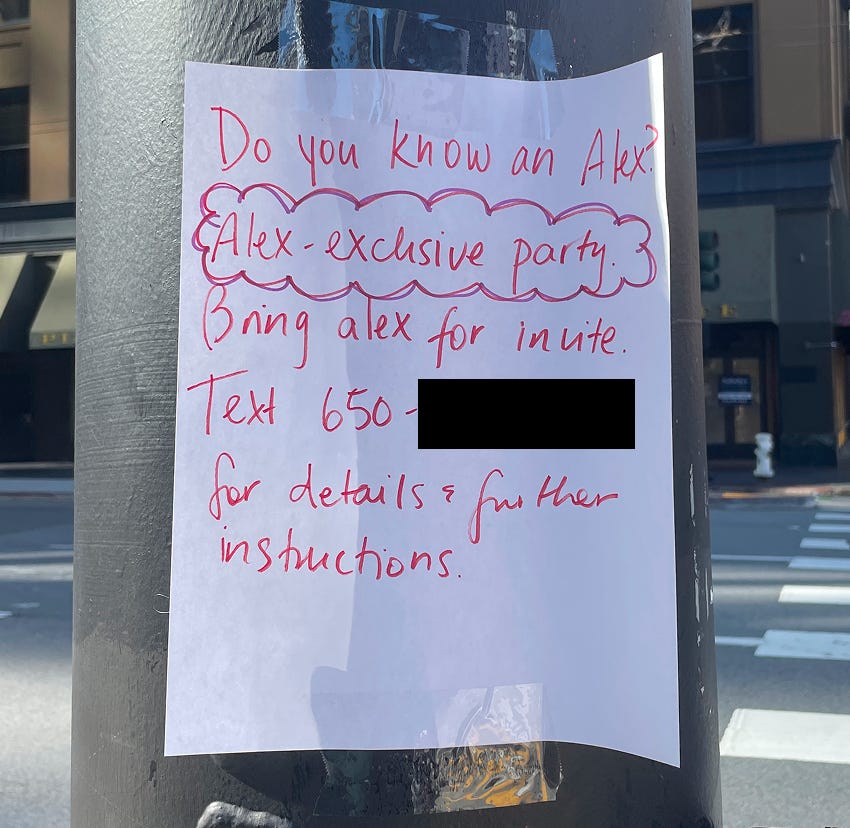 Do you know an Alex?
Alex-exclusive party.
Bring alex for invite.
Text 650-
for details & further
instructions.